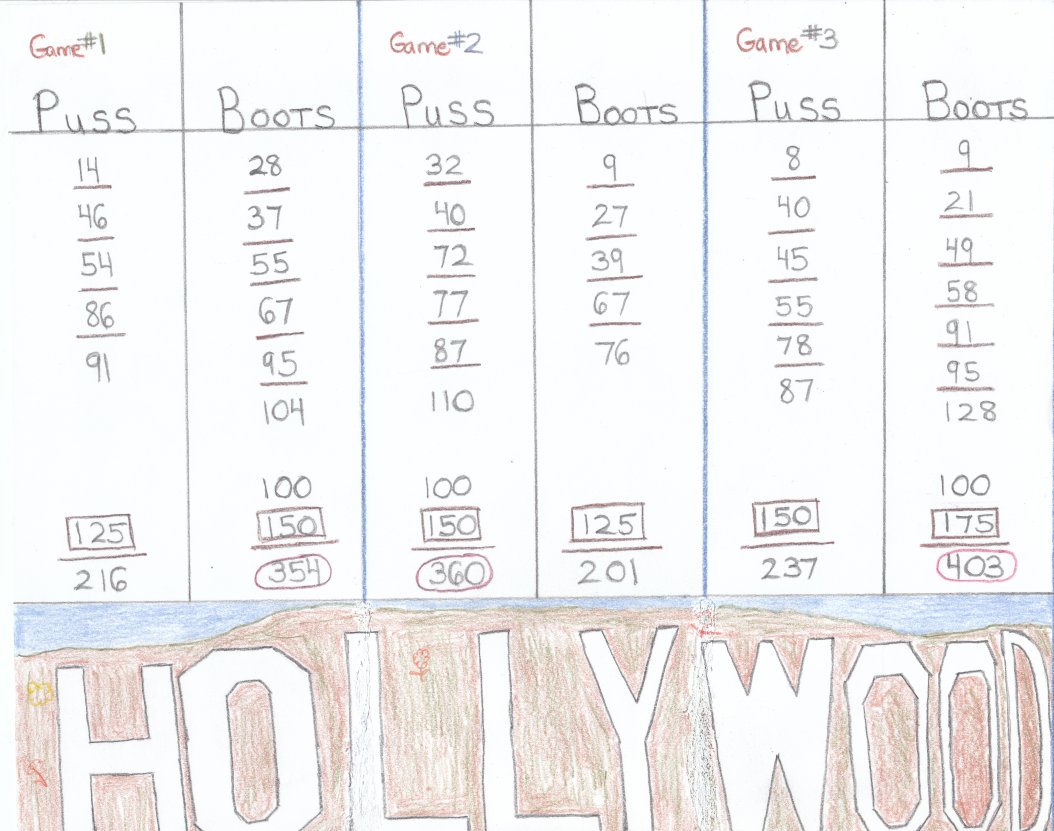 Game#1 Game#2 Game#3
PUSS BOOTS PUSS BOOTS PUSS BOOTS
14 28 32 9 8 9
46 37 40 27 40 21
54 55 72 39 45 49
86 67 77 67 55 58
91 95 87 76 78 91
104 110 87 95
128
100 100 100
125 150 150 125 150 175
216 354 360 201 237 403
HOLLYWOOD